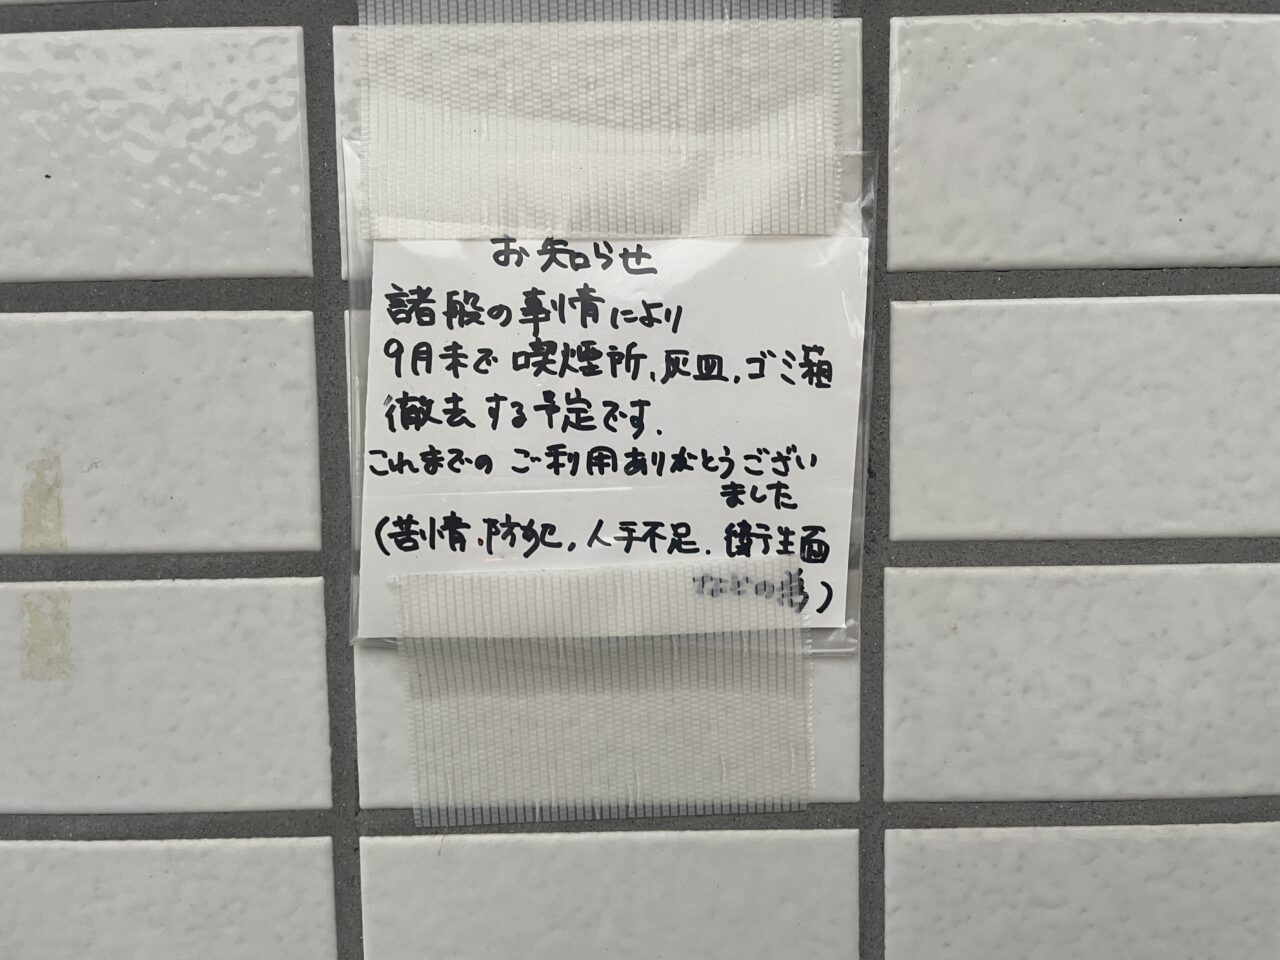 お知らせ
諸般の事情により
9月末で喫煙所、灰皿、ゴミ箱
撤去する予定です。
これまでのご利用ありがとうござい
ました
(苦情、防犯、人手不足、衛生面
などの為)